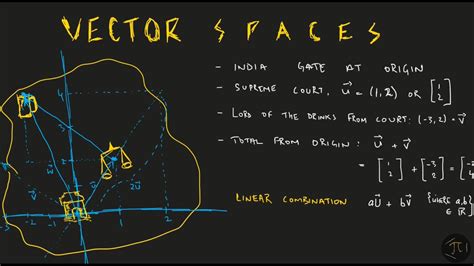 VECTOR SPACES
- INDIA GATE AT ORIGIN
- SUPREME COURT, u⃗ = (1, 2) OR [1 2]
- LORD OF THE DRINKS FROM COURT: (-3, 2) = v⃗
- TOTAL FROM ORIGIN: u⃗ + v⃗
= [1 2] + [-3 2] = [-2
LINEAR COMBINATION au⃗ + bv⃗ {where a,b} ∈ ℝ
4
3
2
w⃗
v⃗
u⃗
2u⃗
-3
-2
-1
1
2
π